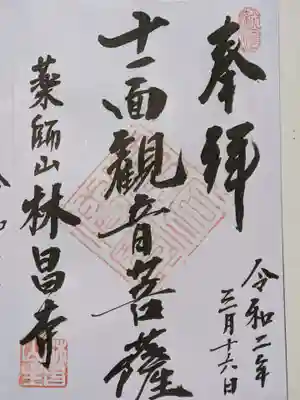 奉拝
令和二年
三月十六日
十一面観音菩薩
薬師山 林昌寺